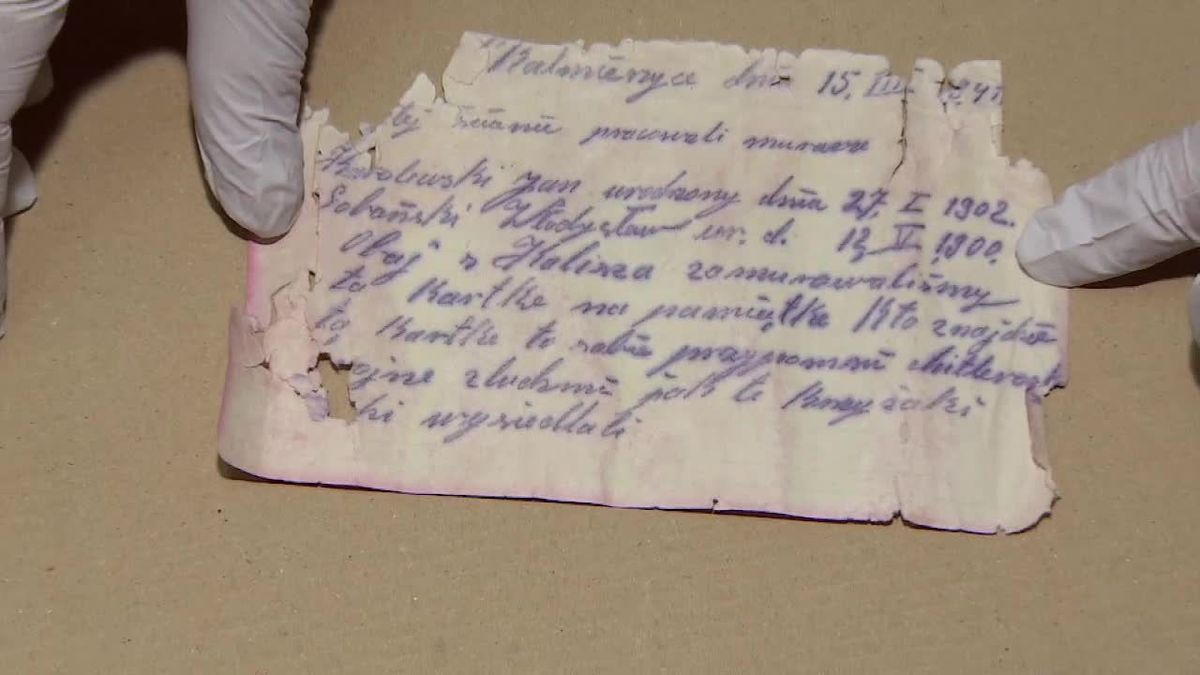 Kalmierzyce dnia 15. III 1941
tej ścianie pracowali murarze
Karolewski Jan urodzony dnia 27. I 1902.
Sobański Władysław ur. d. 12 V 1900.
Obaj z Kalisza zamurowaliśmy
tą Kartkę na pamiątkę Kto znajdzie
tą Kartkę to sobie przypomni
ojne z ludzmi jak te Krzyżaki
wysiedlali